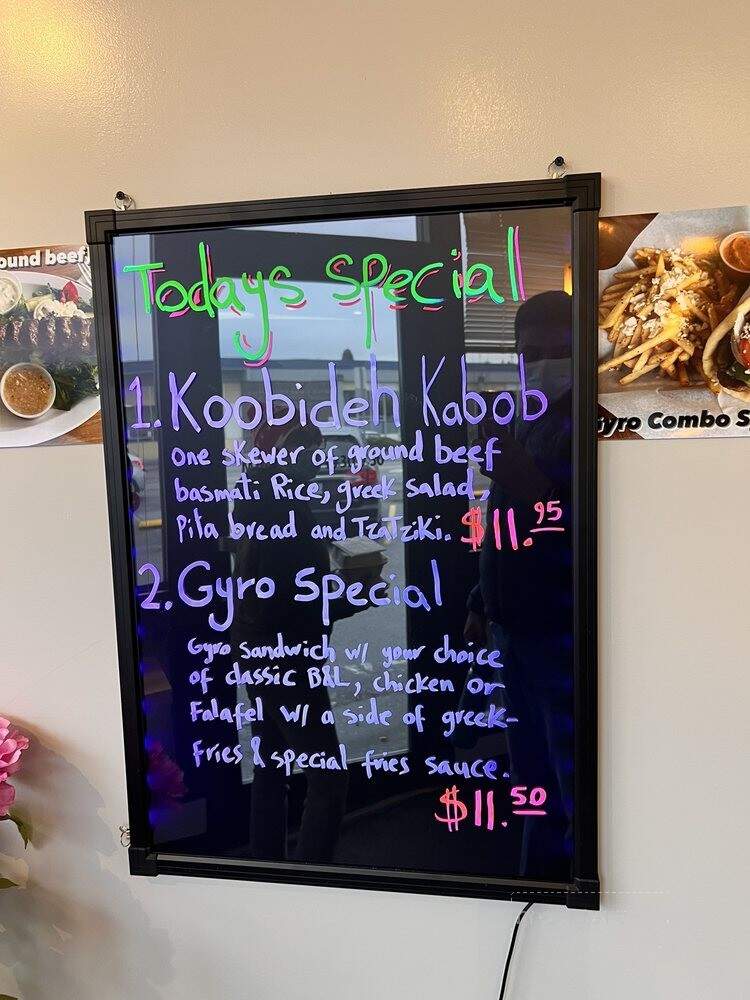 Todays Special
1. Koobideh Kabob
one skewer of ground beef
basmati Rice, greek salad,
Pita bread and TzaTziki. $11.95
2. Gyro Special
Gyro sandwich w/ your choice
of classic B&L, chicken or
Falafel w/ a side of greek-
fries & special fries sauce.
$11.50
ound beef
yro Combo S